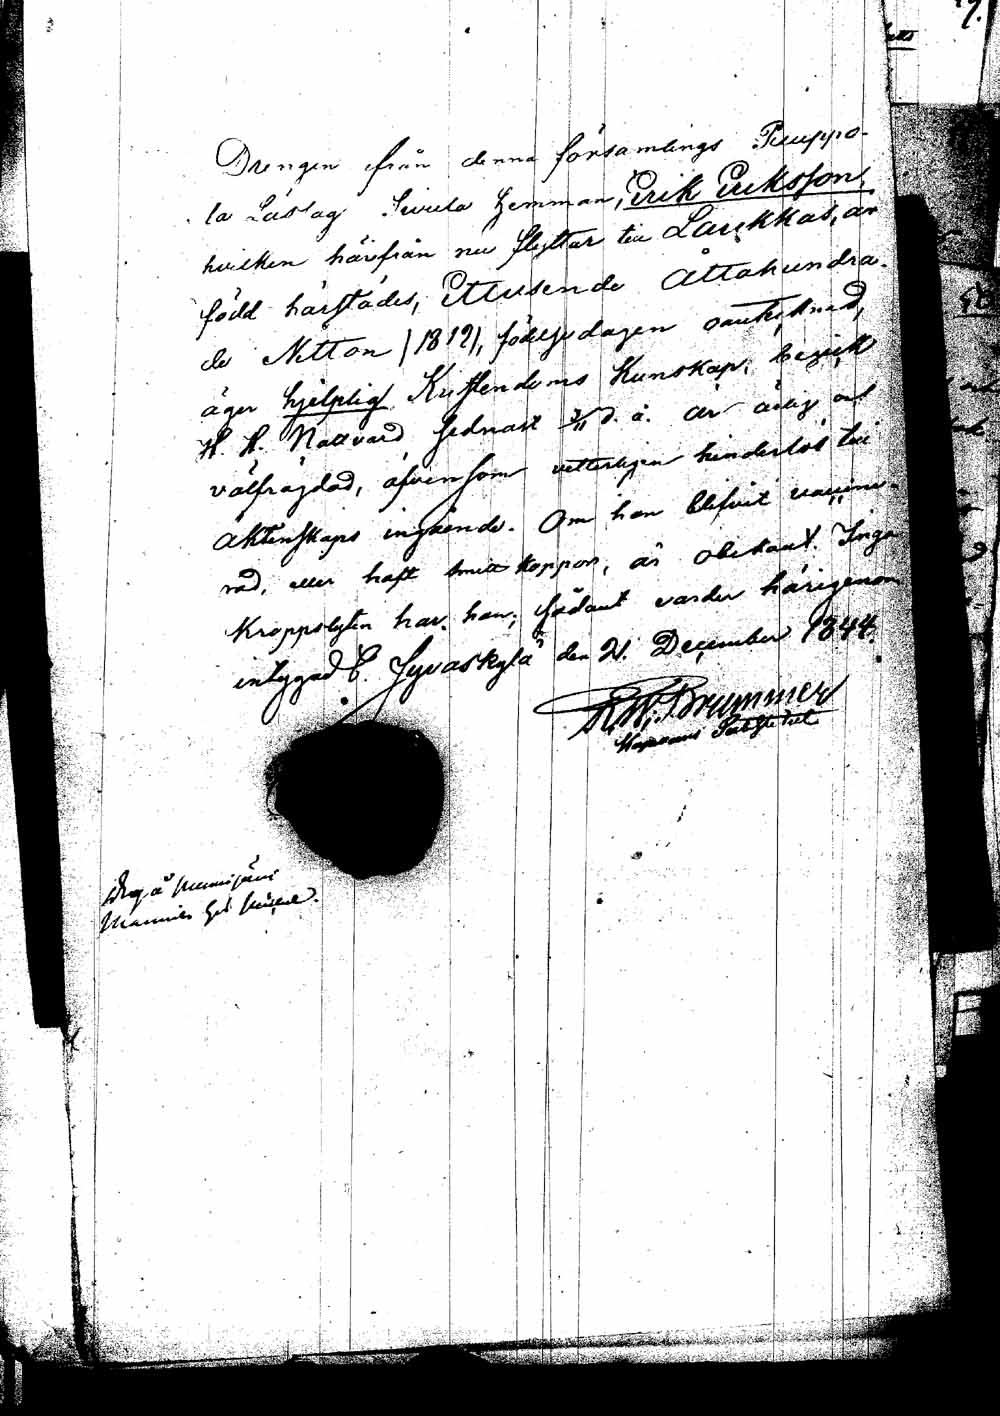 Drengen ifrån denna församlings Puuppo-
la Låstag Sivula hemman, Erik Eriksson,
hvilken härifrån nu flyttar till Laukkas, är
född härstädes, Ettusende Åttahundra-
de Nitton (1819), födelsedagen oantecknad,
äger hjelplig Kristendoms Kunskap, begick
H. H. Nattvard sednast d. å. är ärlig och
välfrägdad, äfvensom vetterligen hinderlös till
äktenskaps ingående. Om han blifvit vaccine-
rad, eller haft smittkoppor, är obekant. Inga
Kroppslyten har han; sådant varder härigenom
intygad E. Jyväskylä den 21. December 1844.
Brummer
Kapellans Substitut